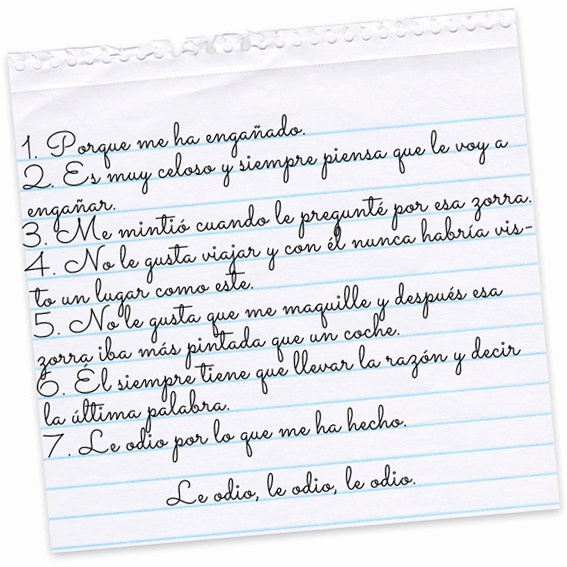 1. Porque me ha engañado.
2. Es muy celoso y siempre piensa que le voy a
engañar.
3. Me mintió cuando le pregunté por esa zorra.
4. No le gusta viajar y con él nunca habría vis-
to un lugar como este.
5. No le gusta que me maquille y después esa
zorra iba más pintada que un coche.
6. Él siempre tiene que llevar la razón y decir
la última palabra.
7. Le odio por lo que me ha hecho.
Le odio, le odio, le odio.